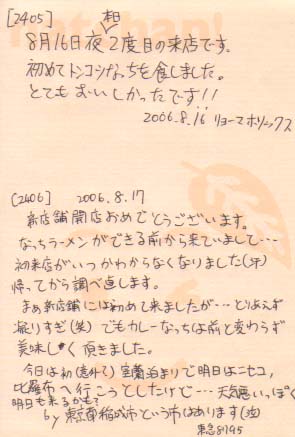 [2405]
相
8月16日夜2度目の来店です。
初めてトンコツなっちを食しました。
とてもおいしかったです!!
2006.8.16 リョーマホリックス
[2406] 2006.8.17
新店舗開店おめでとうございます。
なっちラーメンができる前から来ていまして…
初来店がいつかわからなくなりました(汗)
帰ってから調べ直します。
まぁ新店舗には初めて来ましたが…とりあえず
凝りすぎ(笑) でもカレーなっちは前と変わらず
美味しく頂きました。
今日は初(意外で)室蘭泊まりで明日はニセコ,
比羅布へ行こうとしたけど…天気悪いっぽく
明日も来るかも?
by 東京都稲城市という市はあります(泣)